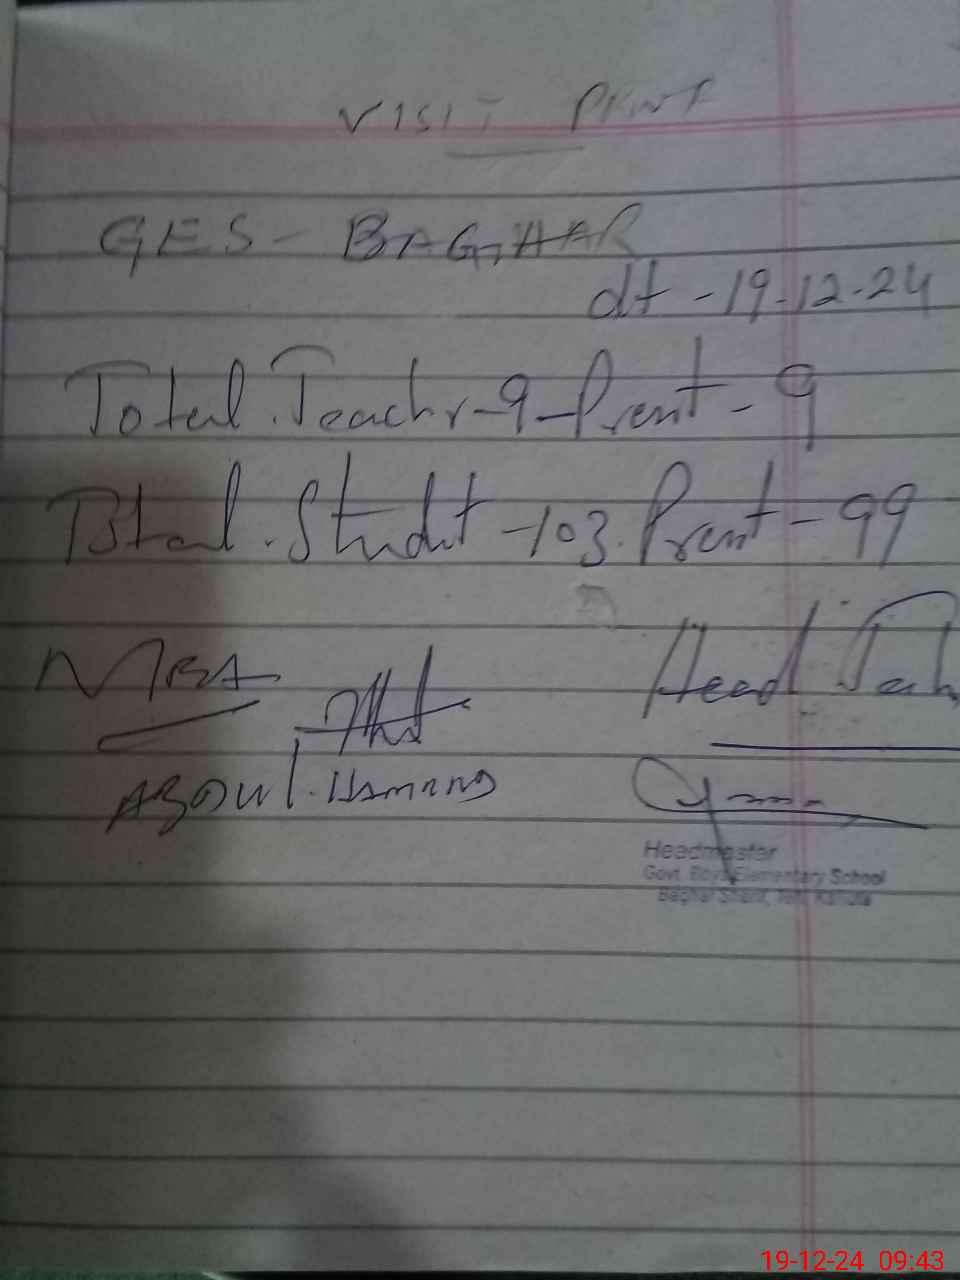 VISIT PRINT
GES - BAGHAR
dt - 19.12.24
Total. Teachr - 9 - Prent - 9
Total. Studnt - 103. Prent - 99
MEA
Head Teah
ABDUL.
Headmaster
Govt. Boys Elementary School
Baghar Sharif,
19-12-24 09:43